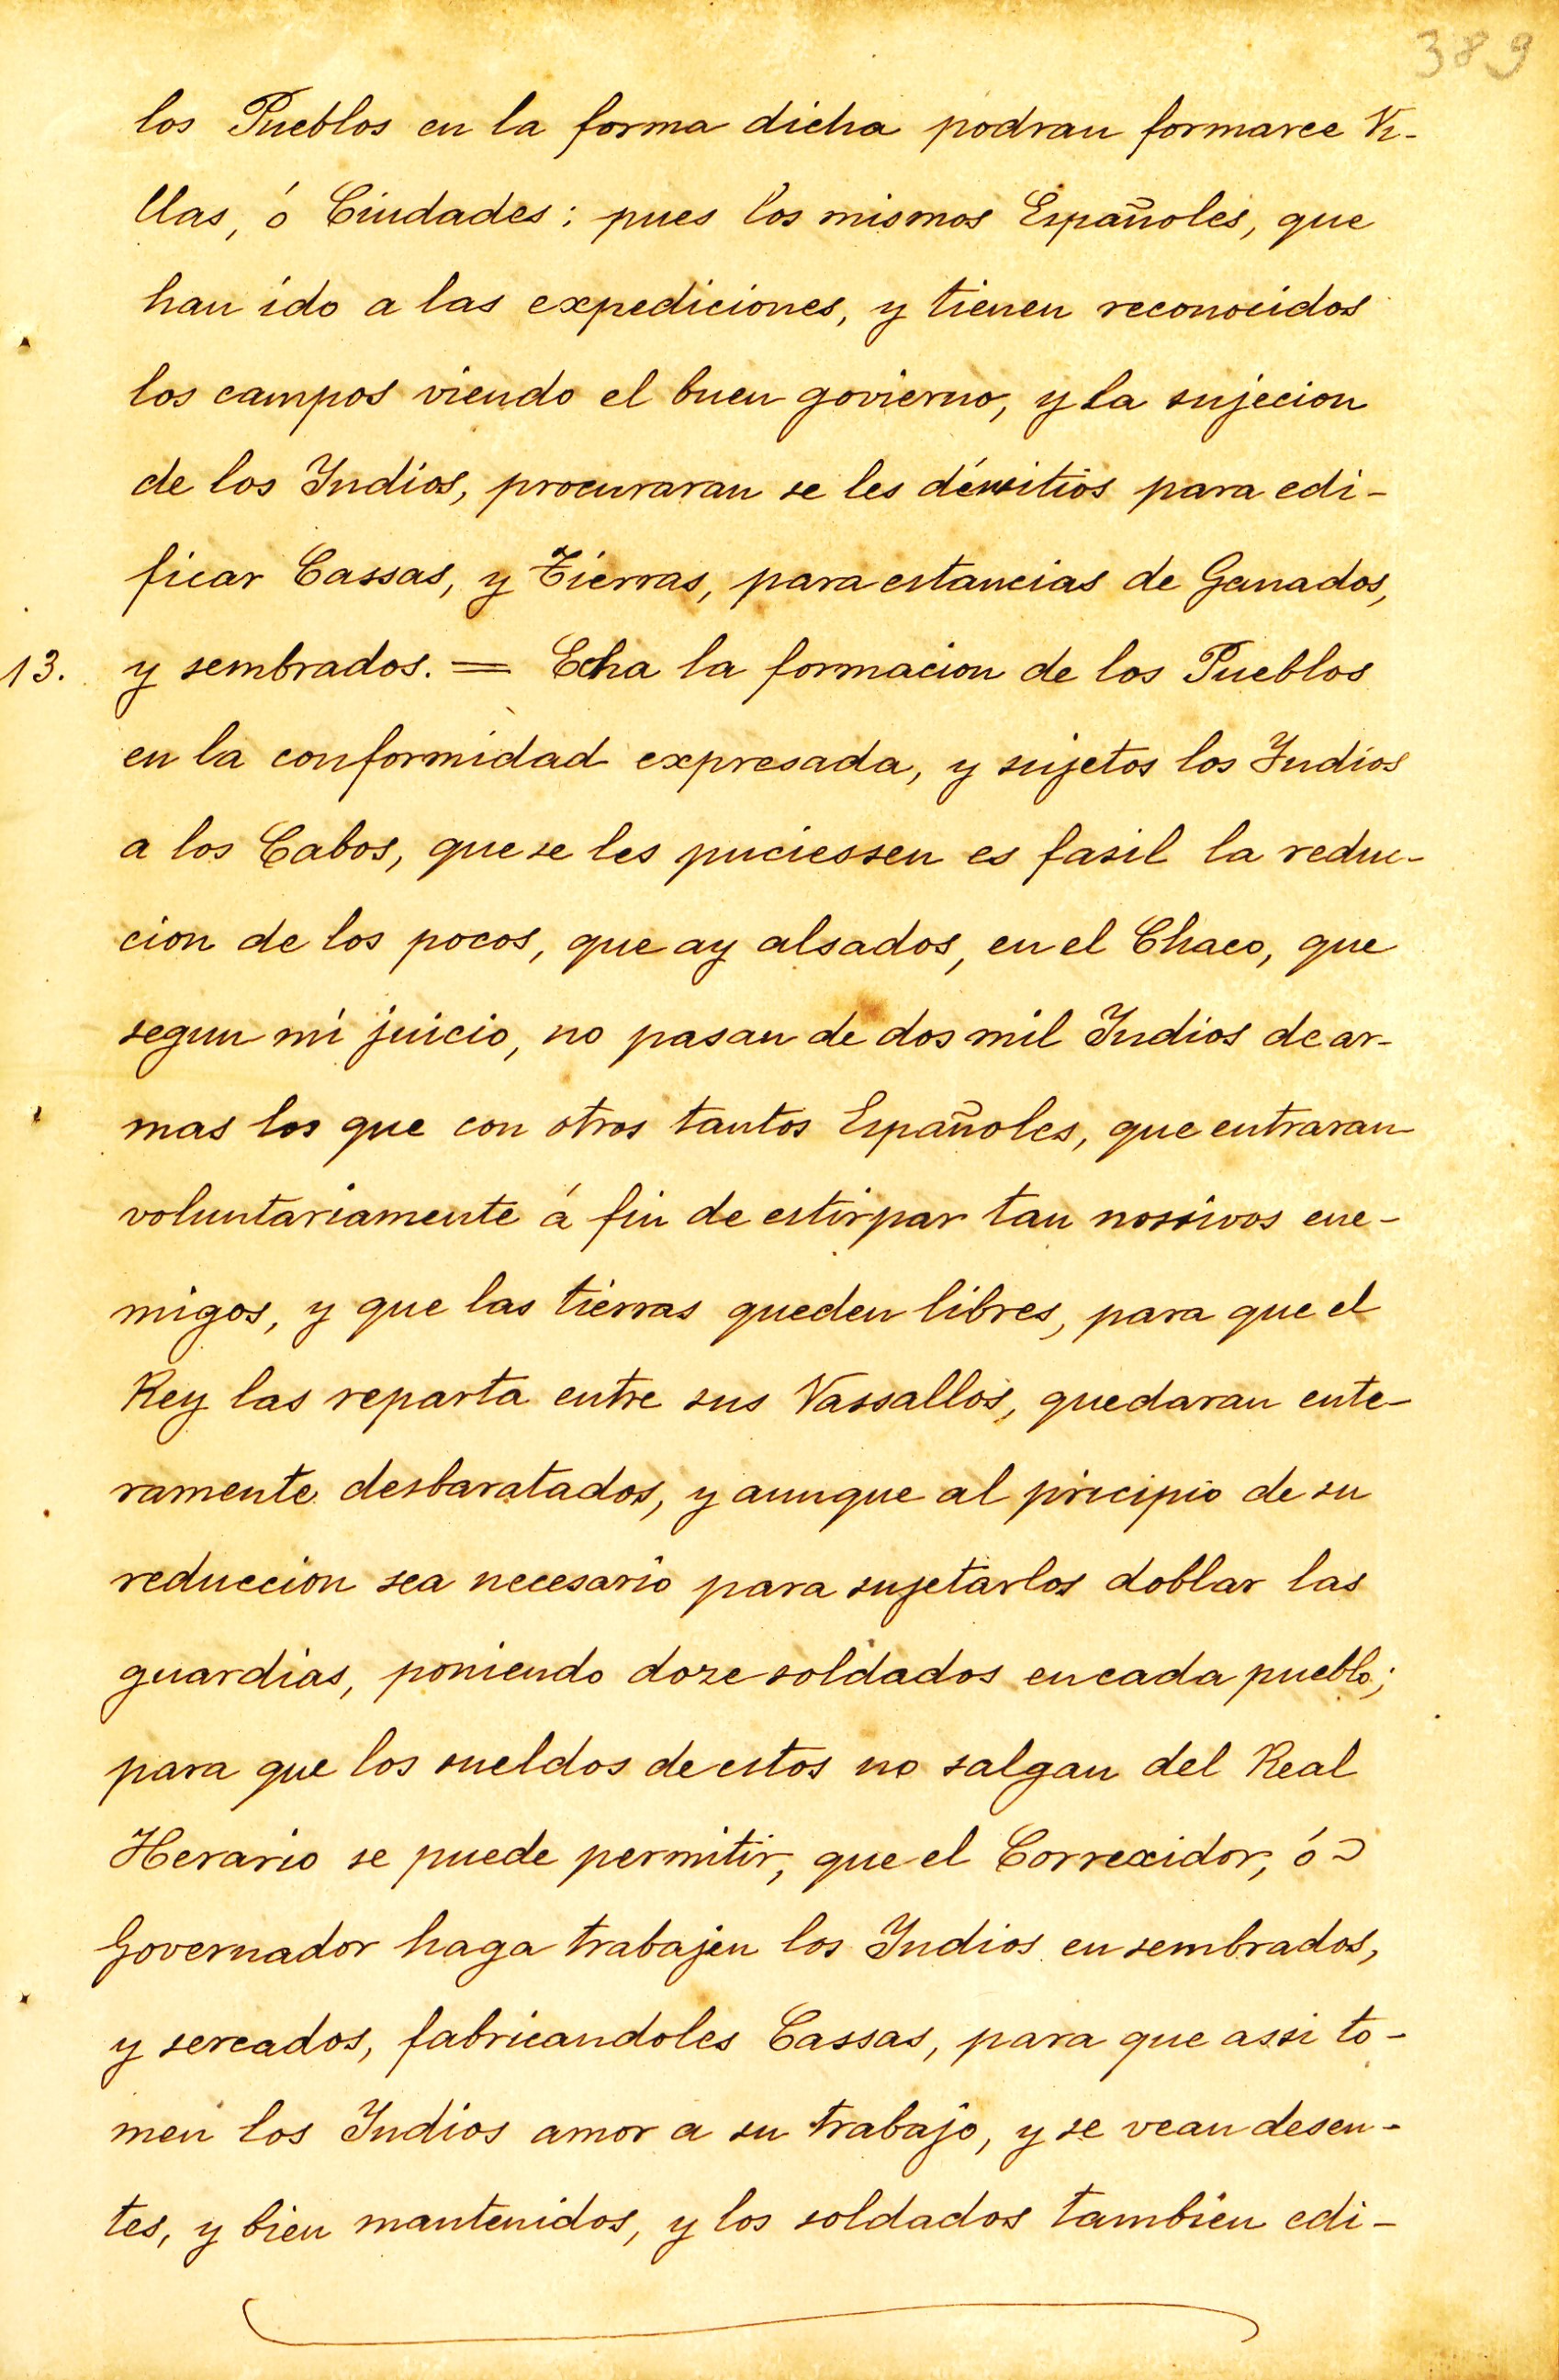 389
los Pueblos en la forma dicha podran formarce Vi-
llas, ó Ciudades; pues los mismos Españoles, que
han ido a las expediciones, y tienen reconocidos
los campos viendo el buen govierno, y la sujecion
de los Indios, procuraran se les dén sitios para edi-
ficar Cassas, y Tierras, para estancias de Ganados,
13. y sembrados. = Echa la formacion de los Pueblos
en la conformidad expresada, y sujetos los Indios
a los Cabos, que se les puciessen es fasil la reduc-
cion de los pocos, que ay alsados, en el Chaco, que
segun mi juicio, no pasan de dos mil Indios de ar-
mas los que con otros tantos Españoles, que entraran
voluntariamente á fin de estirpar tan nossivos ene-
migos, y que las tierras queden libres, para que el
Rey las reparta entre sus Vassallos, quedaran ente-
ramente desbaratados, y aunque al pricipio de su
reduccion sea necesario para sujetarlos doblar las
guardias, poniendo doze soldados en cada pueblo;
para que los sueldos de estos no salgan del Real
Herario se puede permitir, que el Correxidor, ó
Governador haga trabajen los Indios en sembrados,
y sercados, fabricandoles Cassas, para que assi to-
men los Indios amor a su trabajo, y se vean desen-
tes, y bien mantenidos, y los soldados tambien edi-